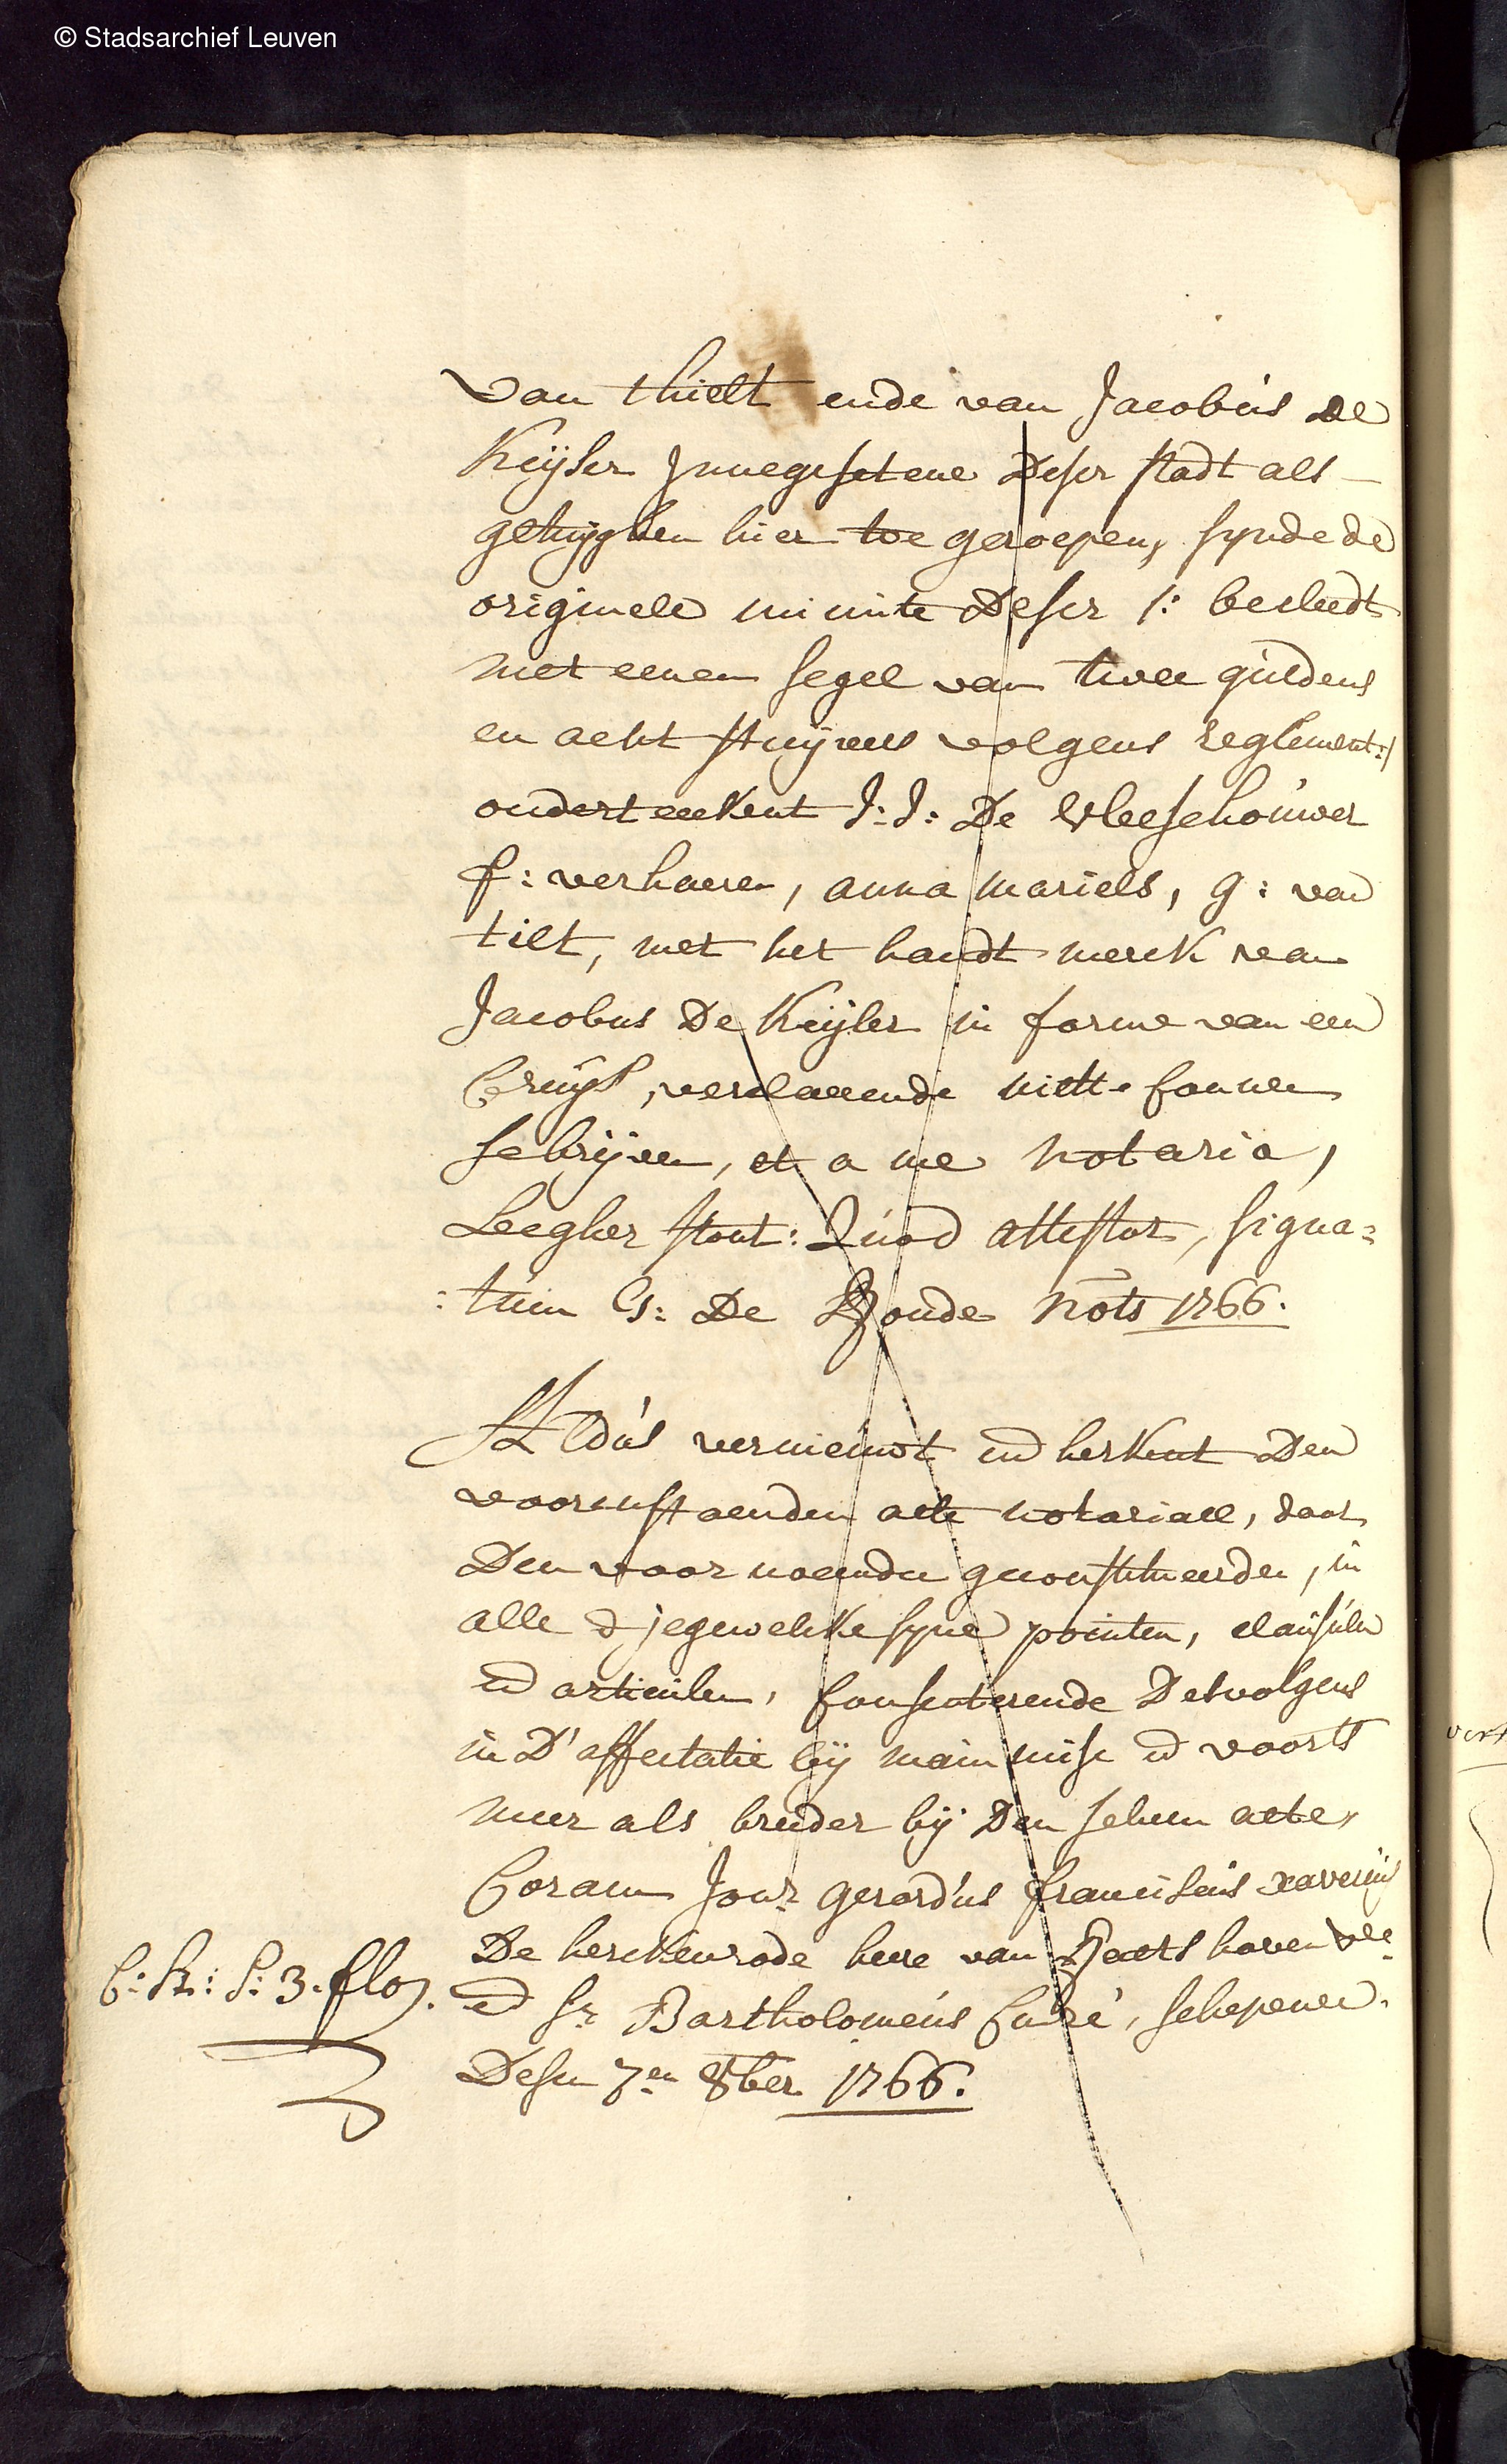 © Stadsarchief Leuven
van thielt ende van Jacobus de
Keijser Innegesetene deser stadt als
getuijghen hier toe geroepen, synde de
originele minute deser /: becleedt
met eenen segel van twee guldens
en acht stuijvers volgens reglement:/
onderteekent J: J: De Vleeschouwer
f: verhaeren, anna Mariels, g: van
tilt, met het handt merck van
Jacobus De Keijser in forme van een
Cruijs, verclaerende niet te connen
schrijven, et a me notario,
Leegher stont: Quod attestor, signa=
:tum G: De Ronde nots 1766.
Aldus vernieuwt end herkent den
voorenstaenden acte notariael, door
Den voornoemden geconstitueerden, in
alle & jegewelcke syne pointen, clausulen
end articulen, consenterende Detvolgens
in D'affectatie bij main mise end voorts
meer als breeder bij Den selven acte,
Coram Jonr Gerardus franciscus xaverius
De herckenrode heere van
end sr Bartholomeus Cudré, schepenen
C: R: S: 3. flo:
Desen 7en 8ber 1766.